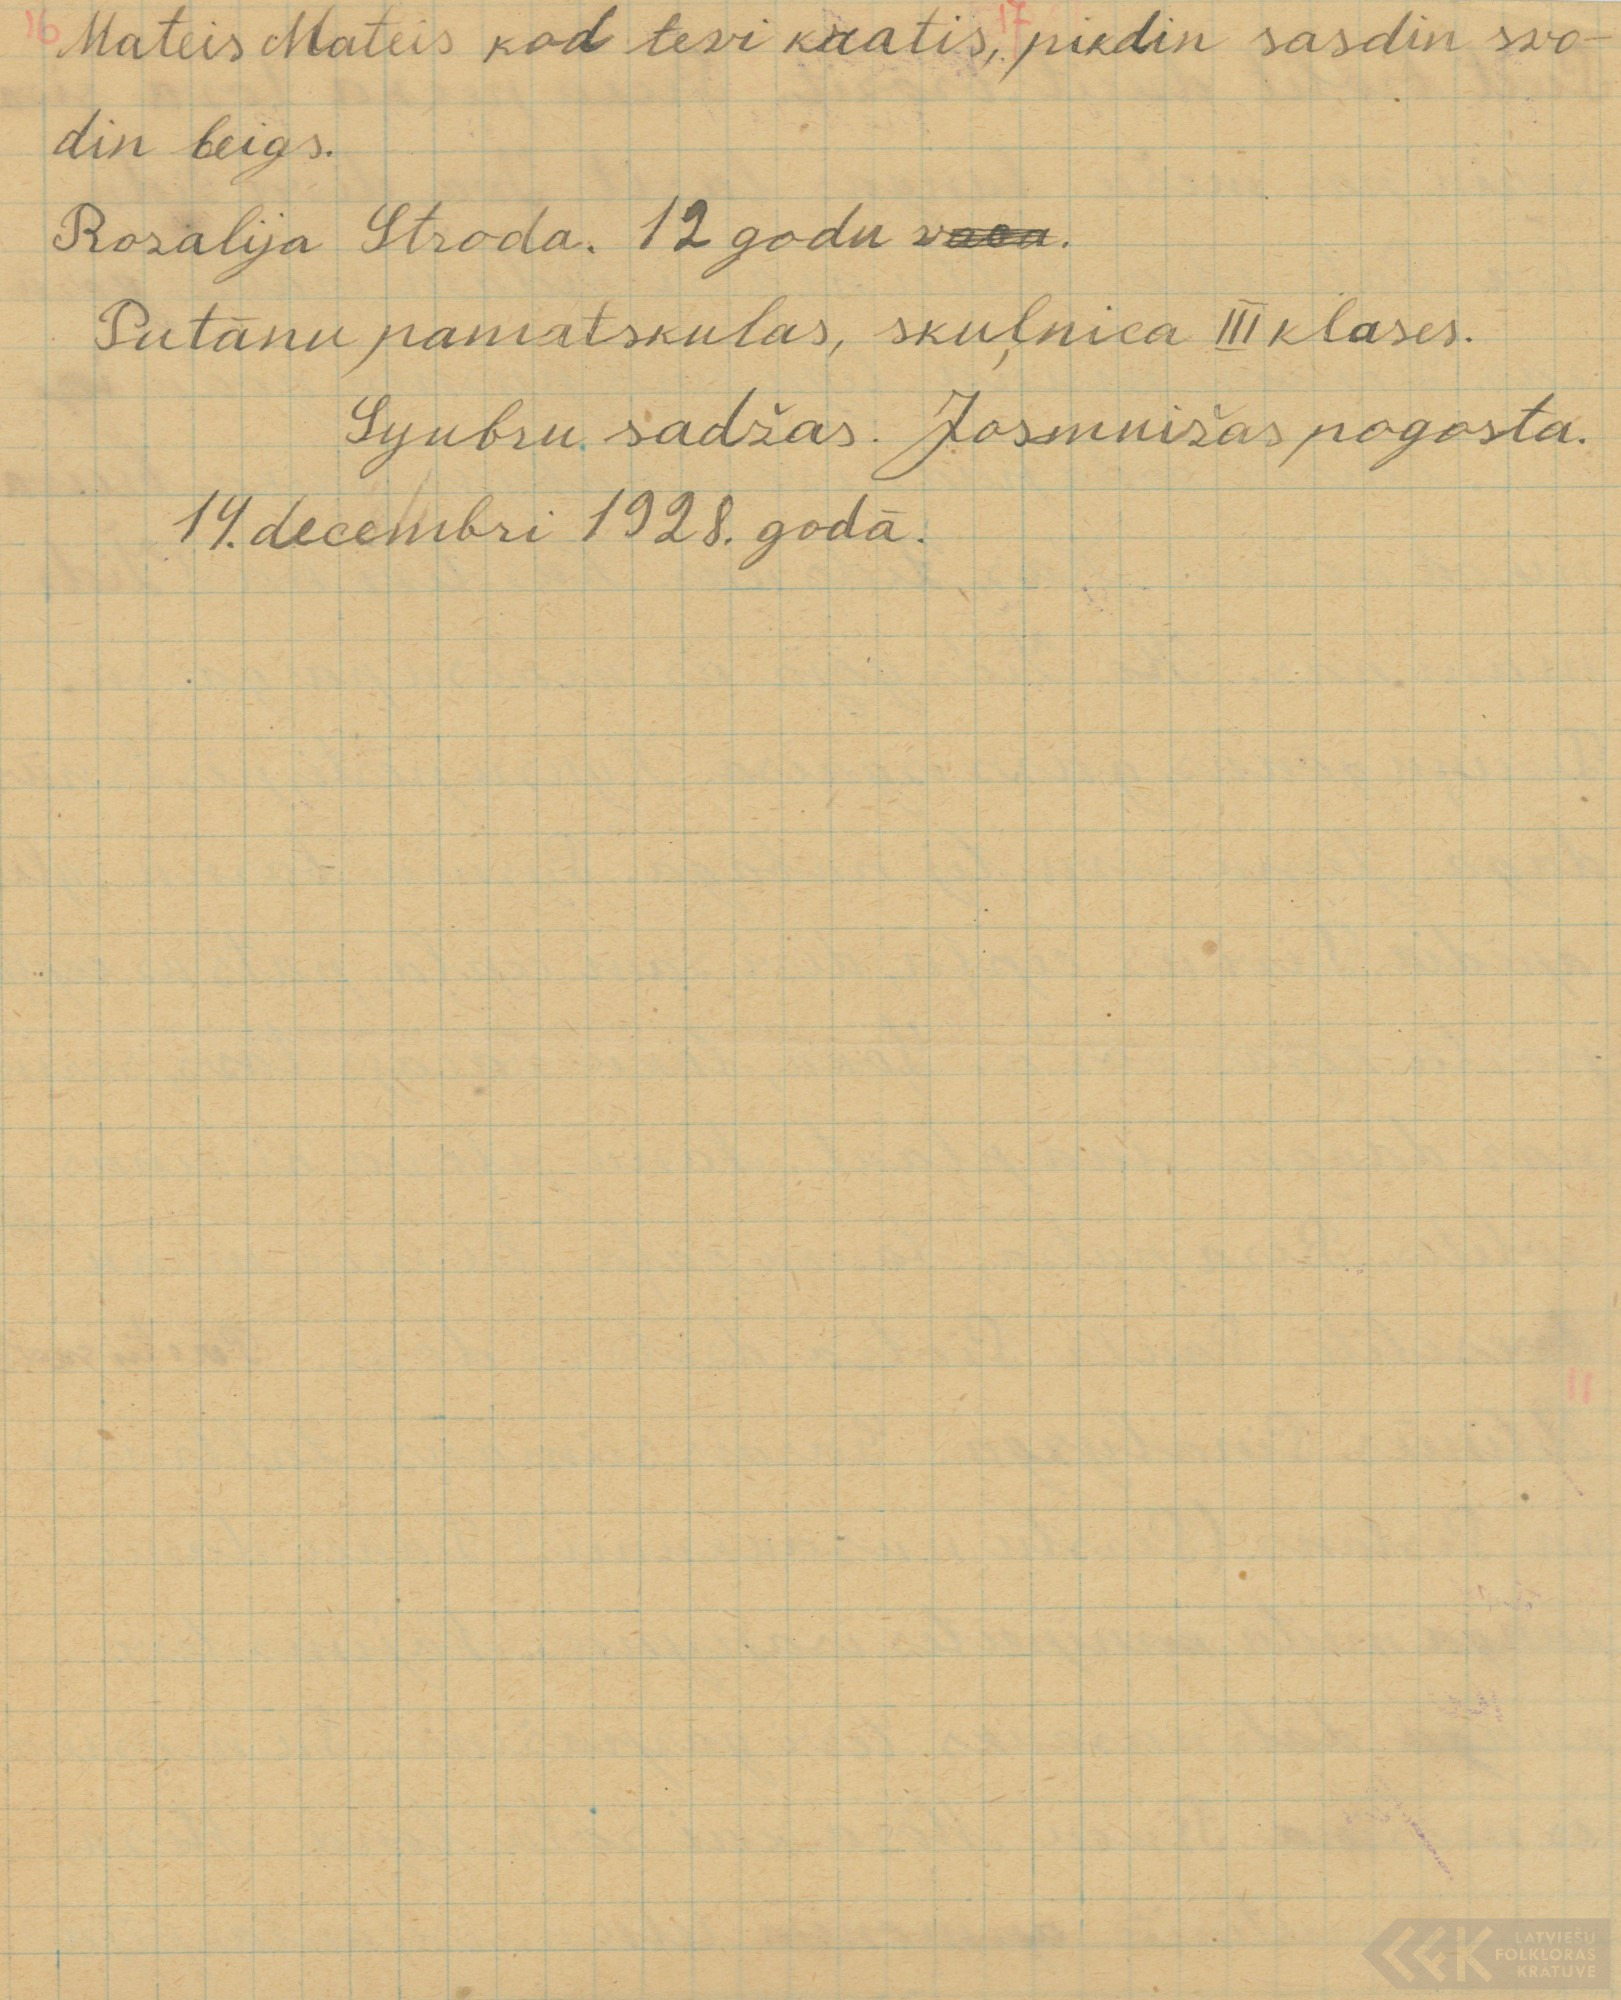 16 Mateis Mateis kod tevi kratis, 17 pikdin sasdin svo-
din beigs.
Rozalija Stroda. 12 godu vaca.
Putānu pamatskulas, skuļnica III klases.
Syubru sadžas. Josmuižas pogosta.
14. decembri 1928. godā.
LATVIEŠU
FOLKLORAS
KRĀTUVE